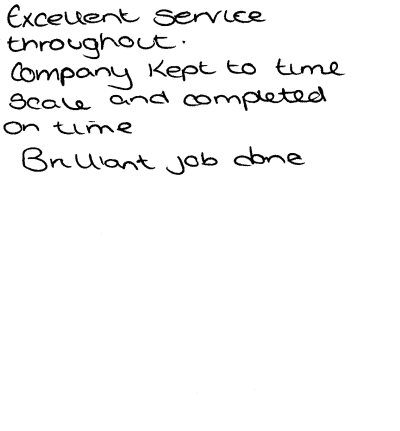 Excellent service
throughout.
Company kept to time
scale and completed
on time
Brilliant job done